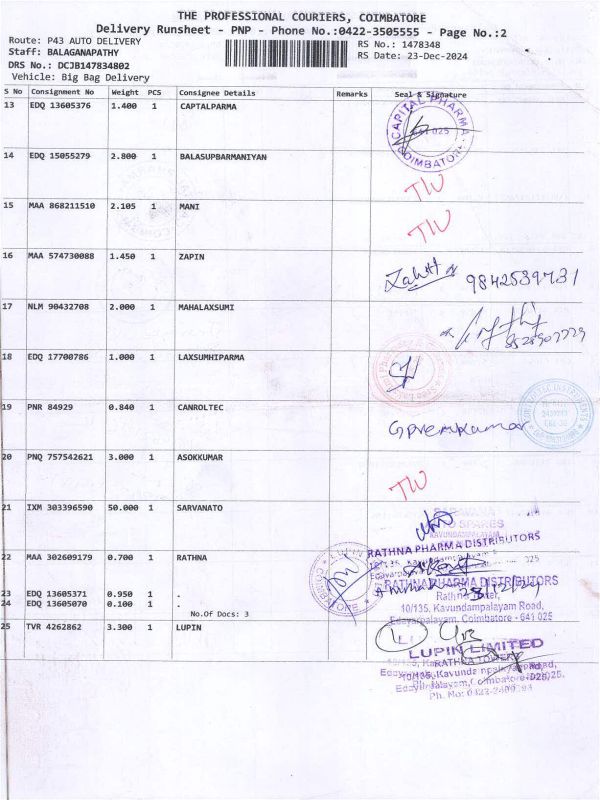 THE PROFESSIONAL COURIERS, COIMBATORE
Delivery Runsheet - PNP - Phone No.:0422-3505555 - Page No.:2
Route: P43 AUTO DELIVERY
RS No.: 1478348
Staff: BALAGANAPATHY
RS Date: 23-Dec-2024
DRS No.: DCJB147834802
Vehicle: Big Bag Delivery
S No Consignment No Weight PCS Consignee Details Remarks Seal & Signature
13 EDQ 13605376 1.400 1 CAPTALPARMA
CAPITAL PHARMA
641 025
COIMBATORE
14 EDQ 15055279 2.800 1 BALASUPBARMANIYAN
15 MAA 868211510 2.105 1 MANI
16 MAA 574730088 1.450 1 ZAPIN
9842539731
17 NLM 90432708 2.000 1 MAHALAXSUMI
18 EDQ 17700786 1.000 1 LAXSUMHIPARMA
19 PNR 84929 0.840 1 CANROLTEC
Gpremkumar
20 PNQ 757542621 3.000 1 ASOKKUMAR
21 IXM 303396590 50.000 1 SARVANATO
22 MAA 302609179 0.700 1 RATHNA
RATHNA PHARMA DISTRIBUTORS
23 EDQ 13605371 0.950 1 .
24 EDQ 13605070 0.100 1 .
No.Of Docs: 3
RATHNA PHARMA DISTRIBUTORS
10/135, Kavundampalayam Road,
Edayarpalayam, Coimbatore - 641 025
25 TVR 4262862 3.300 1 LUPIN
LUPIN LIMITED
RATHNA TOWERS